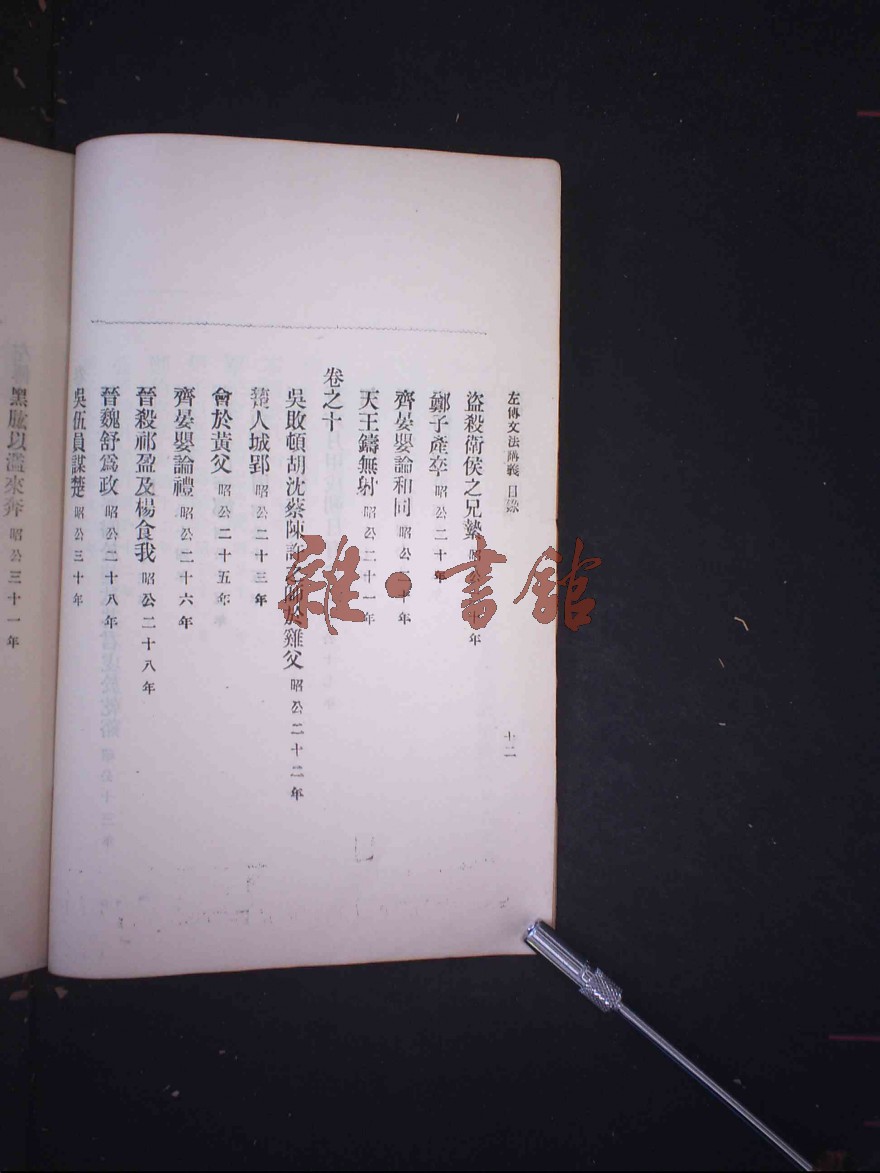 左傳文法講義 目錄 十二
盜殺衛侯之兄縶 十年
鄭子產卒 昭公二十年
齊晏嬰論和同 昭公二十年
天王鑄無射 昭公二十一年
卷之十
吳敗頓胡沈蔡陳許之師於雞父 昭公二十二年
楚人城郢 昭公二十三年
會於黃父 昭公二十五年
齊晏嬰論禮 昭公二十六年
晉殺祁盈及楊食我 昭公二十八年
晉魏舒爲政 昭公二十八年
吳伍員謀楚 昭公三十年
黑肱以濫來奔 昭公三十一年
雜·書館